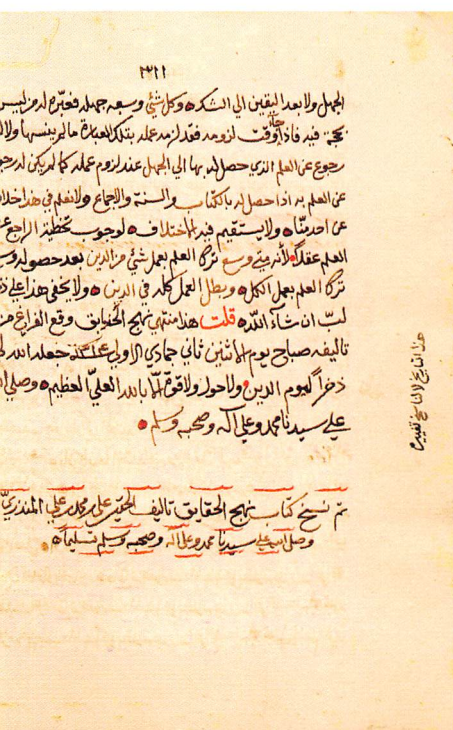 الجهل ولا بعد اليقين الي الشك ه وكل شئ وسعه جهله فعبّره له من ليس
بحجة فيه فاذا وقت لزومه فقد لزمه علمه بتلك العبارة ما لم ينسها ولا له
رجوع عن العلم الذي حصل له بها الي الجهل عند لزوم عمله كما لم يكن له رجو
عن العلم به اذا حصل له بالكتاب والسنة والاجماع ولا نعلم في هذا خلا
عن احد منا ه ولا يستقيم فيه الاختلاف ه لوجوب تخطئة الراجع عن
العلم عقلاً لأنه متي وسع ترك العلم بعمل شئ من الدين بعد حصوله وسع
ترك العلم بعمل الكل ه وبطل العمل كله في الدين ه ولا يخفي هذا علي ذي
لبّ ان شآء اللّه قلت هذا منتهي نهج الحقايق وقع الفراغ من
تاليفه صباح يوم الاثنين ثاني جمادي الاولي جعله الله لي
ذخراً ليوم الدين ولا حول ولا قوة الّا بالله العليّ العظيم ه وصلي الله
علي سيدنا محمد وعلي آله وصحبه وسلم
هذا التاريخ لا
تم نسخ كتاب نهج الحقايق تاليف الحقير علي بن محمد بن علي المنذري
وصلي الله علي سيدنا محمد وعلي آله وصحبه وسلم تسليماً ه